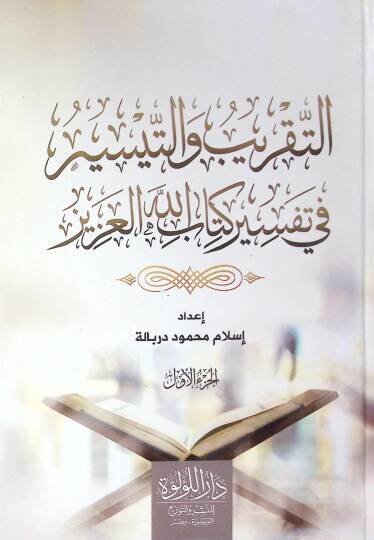 التَّقْرِيبُ وَالتَّيْسِيرُ
فِي تَفْسِيرِ كِتَابِ اللهِ الْعَزِيزِ
إعداد
إسلام محمود دربالة
الجزء الأول
دار اللؤلؤة
للنشر والتوزيع
المنصورة - مصر